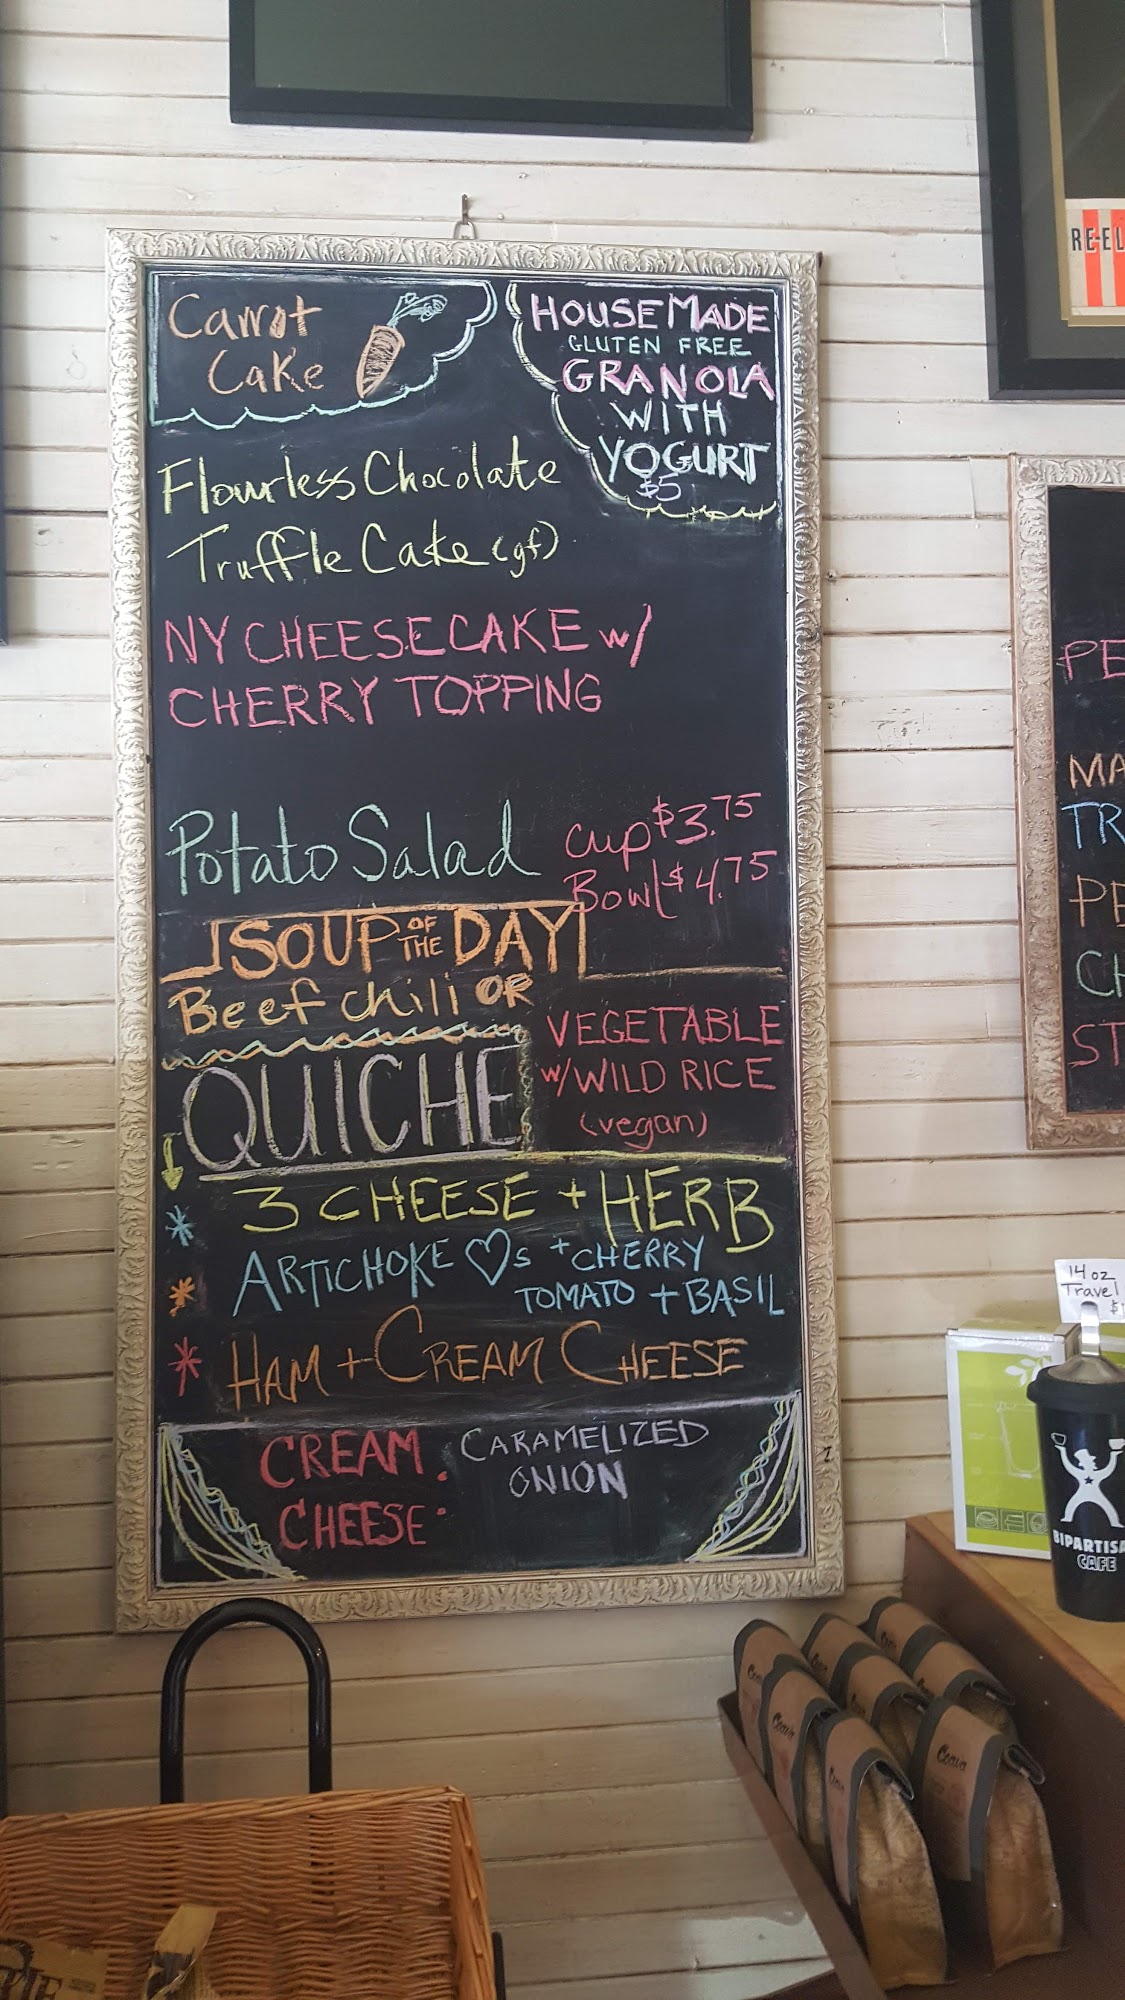 Carrot
Cake
HOUSEMADE
GLUTEN FREE
GRANOLA
WITH
YOGURT
$5
Flourless Chocolate
Truffle Cake (gf)
NY CHEESECAKE w/
CHERRY TOPPING
Potato Salad
Cup $3.75
Bowl $4.75
SOUP OF THE DAY
Beef chili OR
VEGETABLE
w/ WILD RICE
(vegan)
QUICHE
3 CHEESE + HERB
ARTICHOKE ♡s + CHERRY
TOMATO + BASIL
HAM + CREAM CHEESE
CREAM
CHEESE:
CARAMELIZED
ONION
RE-EL
PE
MA
TR
PE
CH
ST
14 oz
Travel
$
BIPARTISA
CAFE
Coava
Coava
Coava
Coava